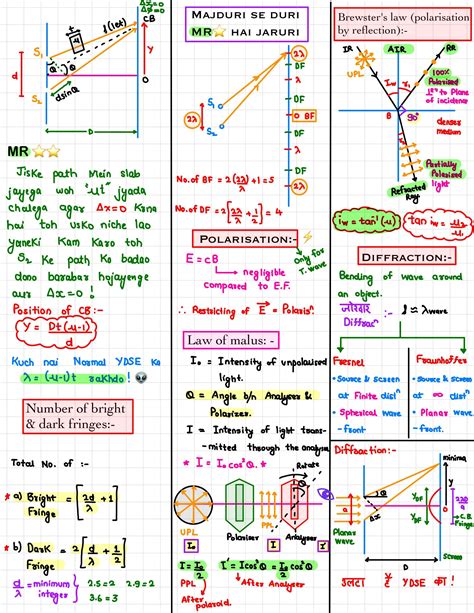 Δx=0
Δϕ=0
CB
f(let)
μ
S₁
Q
Y
d
O
S₂
dsinQ
D
MR
Jiske path mein slab
jayega woh "μt" jyada
chalega agar Δx=0 krna
hai toh usko niche lao
yaneki Kam Karo toh
S₂ Ke path Ko badao
dono barabar hojayenge
aur Δx=0 !
Position of CB:-
Y = Dt(μ-1)/d
Kuch nai Normal YDSE Ka
λ = (μ-1)t rakhdo !
Number of bright
& dark fringes:-
Total No. of :-
* a) Bright Fringe = [2d/λ + 1]
* b) Dark Fringe = 2[d/λ + 1/2]
d/λ = minimum integer
2.5 = 2 2.9 = 2
3.6 = 3
MAJDURI SE DURI
MR HAI JARURI
2λ
DF
λ
DF
S₁
2λ
O BF
S₂
DF
λ
DF
2λ
No. of BF = 2(2λ)/λ +1 = 5
No. of DF = 2[2λ/λ + 1/2] = 4
POLARISATION:-
E = cB
Only for
T. wave
negligible
compared to E.F.
∴ Restricing of E = Polarisⁿ
Law of malus: -
I₀ = Intensity of unpolarised
light.
Q = Angle b/n Analyser &
Polarizer.
I = Intensity of light trans-
mitted through the analyser
* I = I₀cos²Q. *
Rotate
Q
UPL
Polarizer
PPL
Analyser
I₀
I
I
I = I₀/2
I = I cos²Q = I₀/2 cos²Q
PPL
After Analyser
After polaroid.
Brewster's law (polarisation
by reflection):-
IR
AIR
RR
UPL
100%
Polarised
⊥ʳ to Plane
of incidence
B
90°
denser
medium
Partially
Polarised
light
Refracted
Ray
iw = tan⁻¹(μ)
tan iw = μ₂/μ₁
DIFFRACTION:-
Bending of wave around
an object.
जोरदार
Diffracⁿ
: l ≈ λwave
Fresnel
• Source & Screen
at Finite distⁿ
• Spherical wave
-front.
Fraunhoffer
• Source & screen
at ∞ distⁿ
• Planar wave
-front.
Diffraction:-
minima
a
Q
Δx
Y_DF
Y_BF
O
2λD/a
C.B.
Fringe
Planar
wave
D
Screen
उलटा है YDSE का !